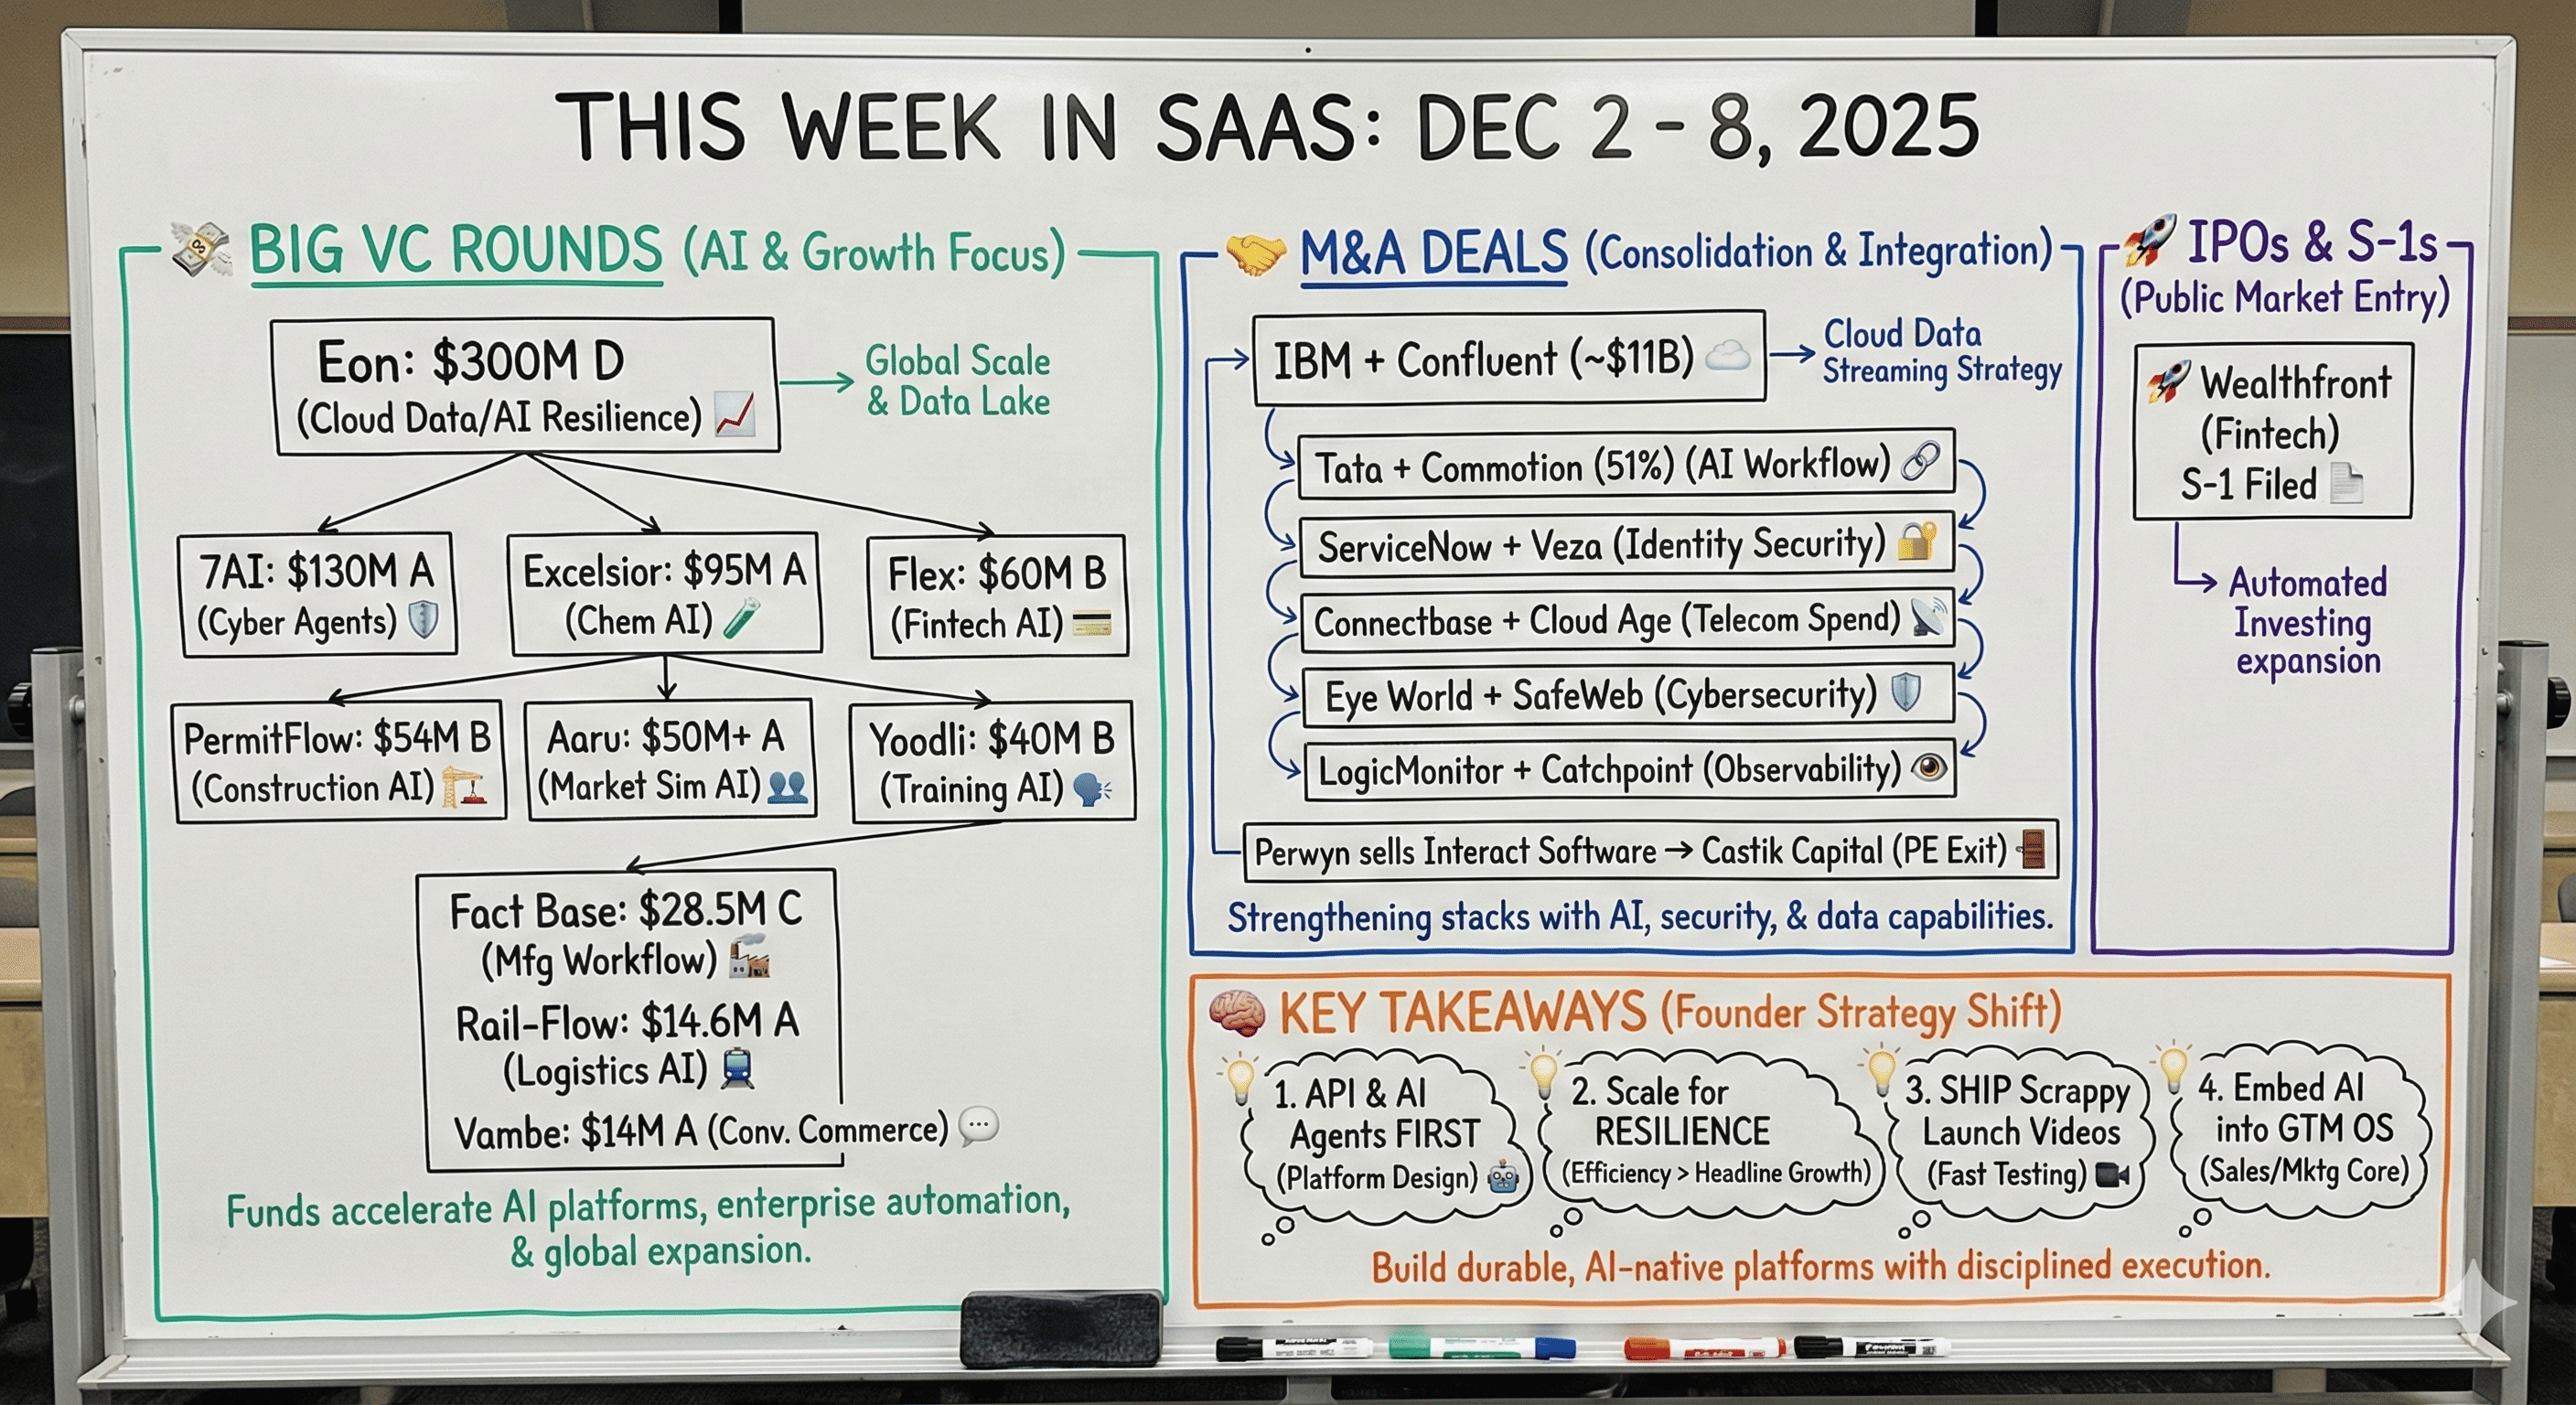 THIS WEEK IN SAAS: DEC 2 - 8, 2025
BIG VC ROUNDS (AI & Growth Focus)
Eon: $300M D
(Cloud Data/AI Resilience)
Global Scale
& Data Lake
7AI: $130M A
(Cyber Agents)
Excelsior: $95M A
(Chem AI)
Flex: $60M B
(Fintech AI)
PermitFlow: $54M B
(Construction AI)
Aaru: $50M+ A
(Market Sim AI)
Yoodli: $40M B
(Training AI)
Fact Base: $28.5M C
(Mfg Workflow)
Rail-Flow: $14.6M A
(Logistics AI)
Vambe: $14M A (Conv. Commerce)
Funds accelerate AI platforms, enterprise automation,
& global expansion.
M&A DEALS (Consolidation & Integration)
IBM + Confluent (~$11B)
Cloud Data
Streaming Strategy
Tata + Commotion (51%) (AI Workflow)
ServiceNow + Veza (Identity Security)
Connectbase + Cloud Age (Telecom Spend)
Eye World + SafeWeb (Cybersecurity)
LogicMonitor + Catchpoint (Observability)
Perwyn sells Interact Software → Castik Capital (PE Exit)
Strengthening stacks with AI, security, & data capabilities.
IPOs & S-1s
(Public Market Entry)
Wealthfront
(Fintech)
S-1 Filed
Automated
Investing
expansion
KEY TAKEAWAYS (Founder Strategy Shift)
1. API & AI
Agents FIRST
(Platform Design)
2. Scale for
RESILIENCE
(Efficiency > Headline Growth)
3. SHIP Scrappy
Launch Videos
(Fast Testing)
4. Embed AI
into GTM OS
(Sales/Mktg Core)
Build durable, AI-native platforms with disciplined execution.